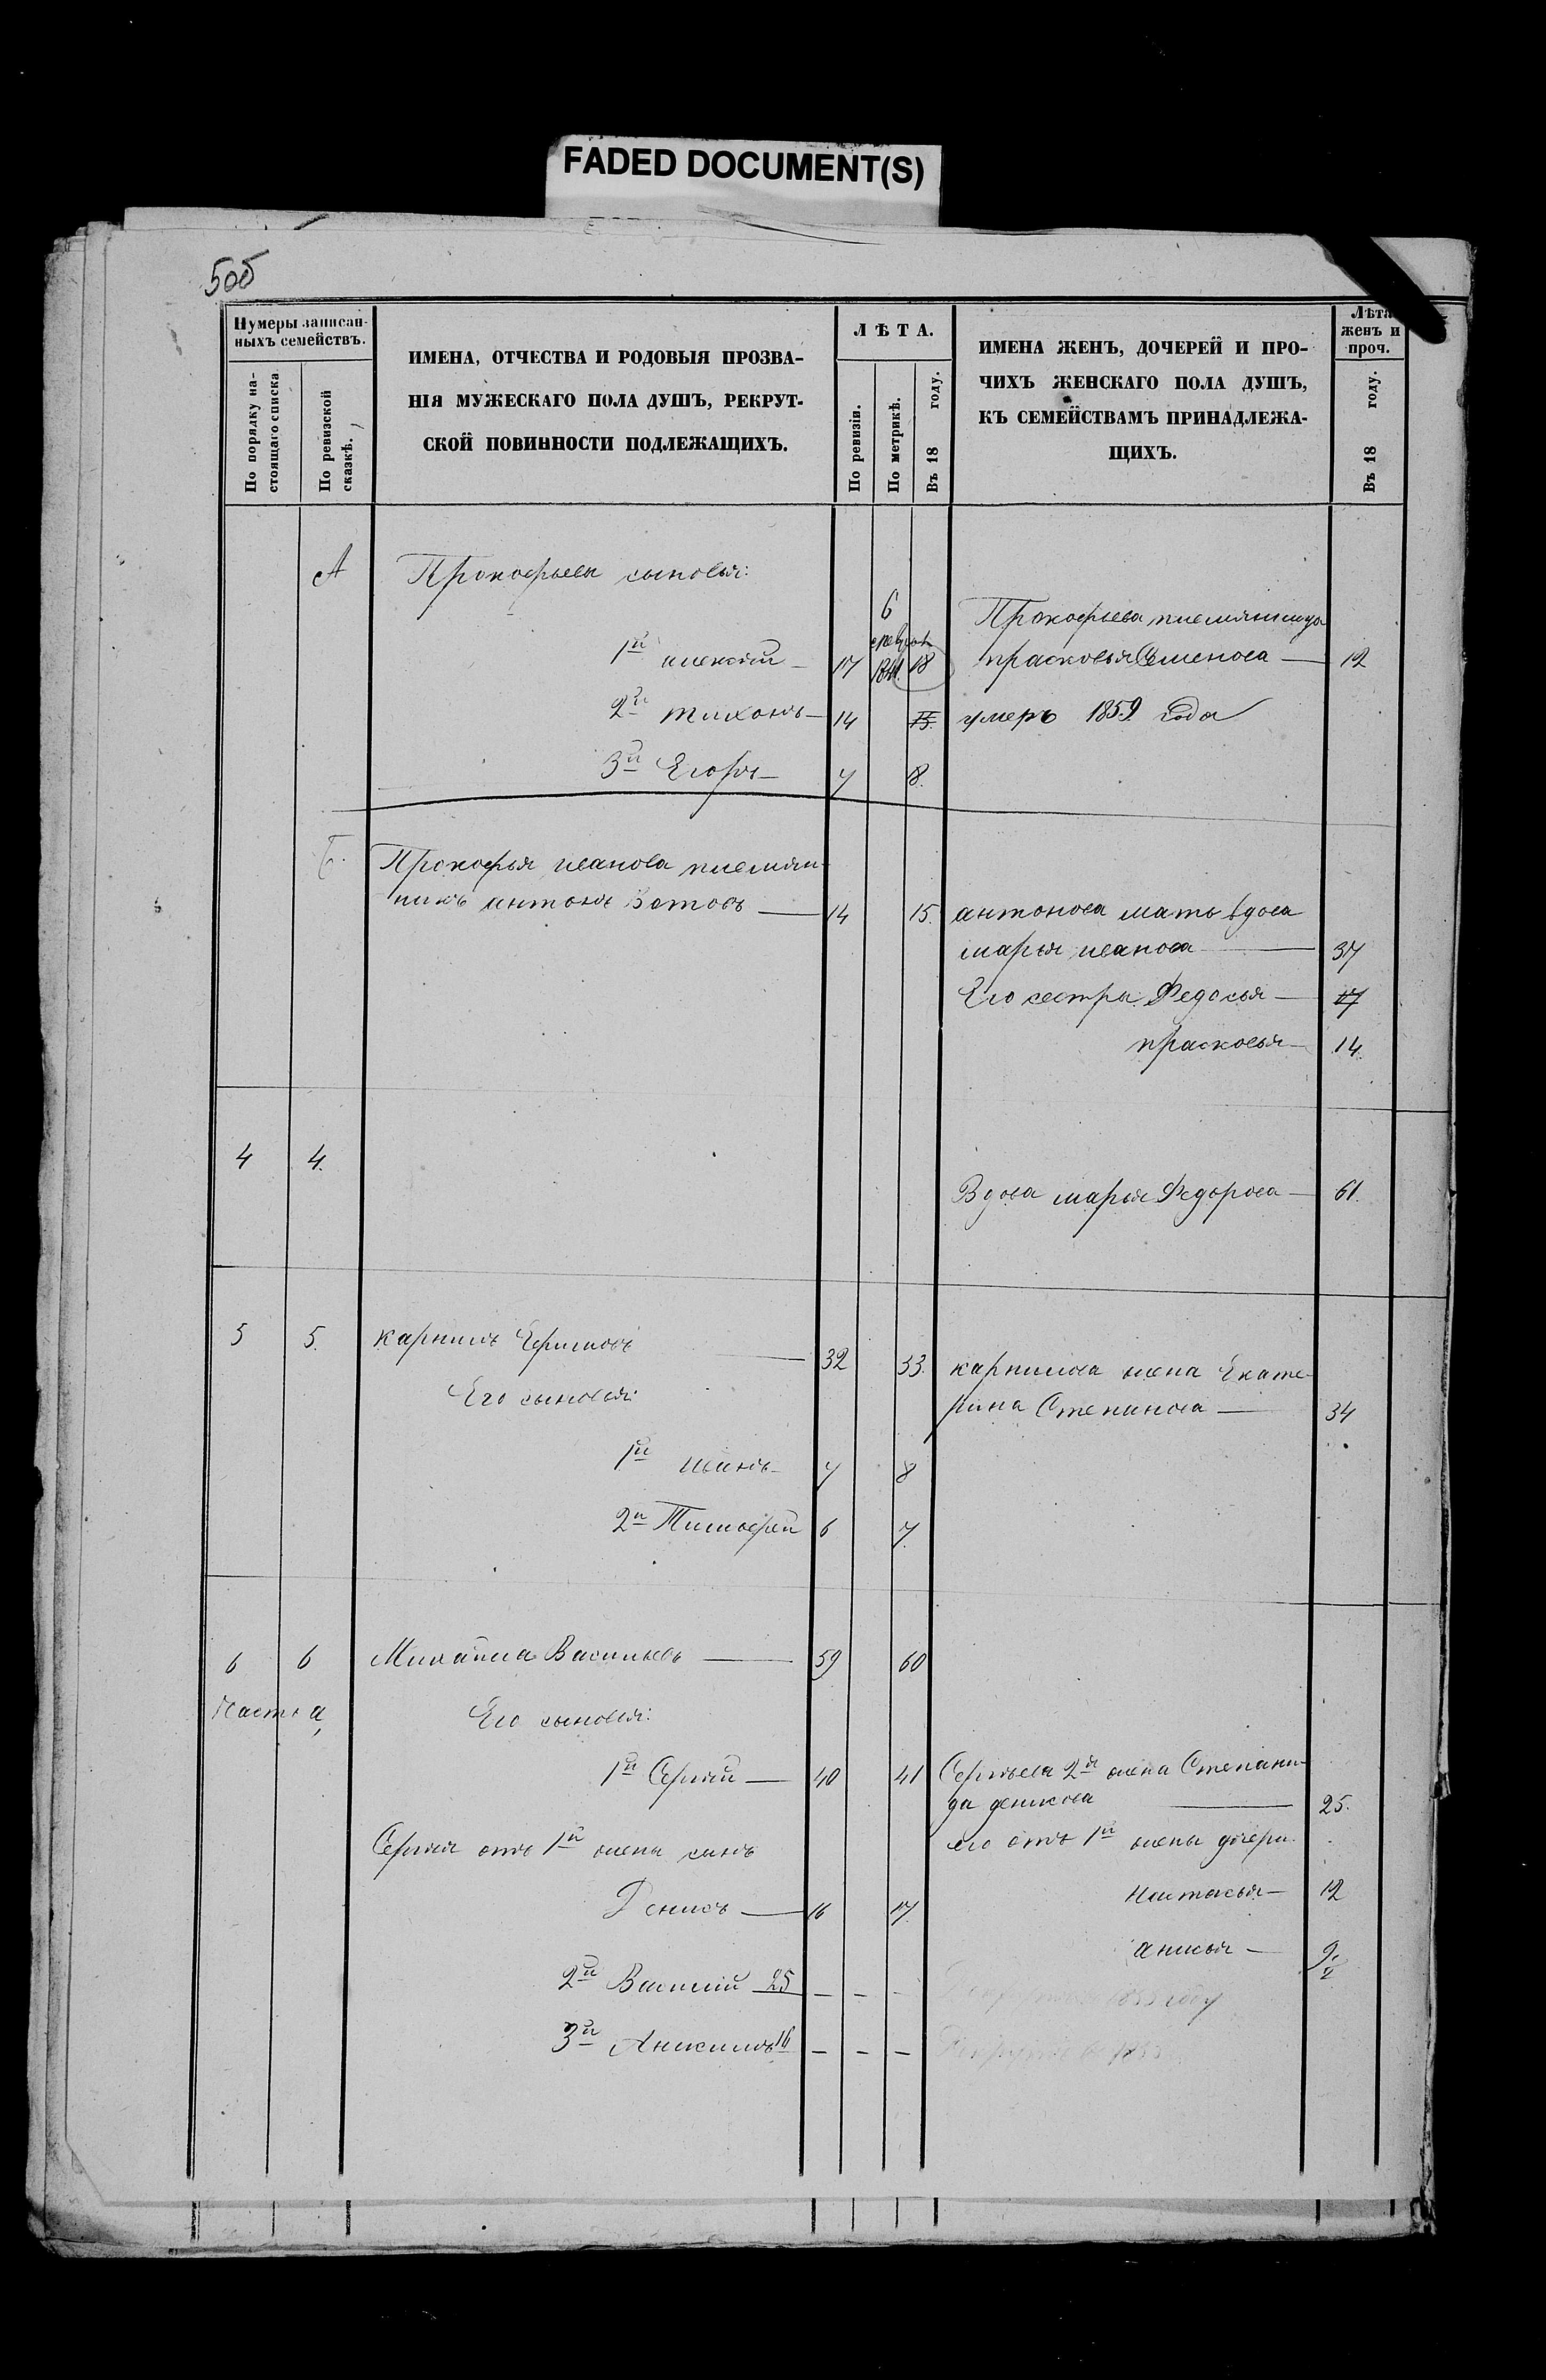 FADED DOCUMENT(S)
50б
Нумеры записан-
ныхъ семействъ.
По порядку на-
стоящаго списка
По ревизской
сказкѣ.
ИМЕНА, ОТЧЕСТВА И РОДОВЫЯ ПРОЗВА-
НІЯ МУЖЕСКАГО ПОЛА ДУШЪ, РЕКРУТ-
СКОЙ ПОВИННОСТИ ПОДЛЕЖАЩИХЪ.
ЛѢТА.
По ревизіи.
По метрикѣ.
Въ 18 году.
ИМЕНА ЖЕНЪ, ДОЧЕРЕЙ И ПРО-
ЧИХЪ ЖЕНСКАГО ПОЛА ДУШЪ,
КЪ СЕМЕЙСТВАМЪ ПРИНАДЛЕЖА-
ЩИХЪ.
Лѣта
женъ и
проч.
Въ 18 году.
А Прокофьевы сыновья:
6
Прокофьева племянница
1й алексѣй 17 1841. 18 прасковья Семенова 12
2й тихонъ 14 15. умеръ 1859 года
3й Егоръ 7 8.
Б. Прокофья иванова племян-
никъ антонъ Зотовъ 14 15. антонова мать вдова
марья иванова 37
Его сестры Федосья 17
прасковья 14.
4 4.
Вдова марья Федорова 61.
5 5. карнилъ Ефимовъ 32 33. карнилова жена Екате-
Его сыновья:
рина Степанова 34
1й иванъ 7 8
2й Тимофей 6 7.
6 6 Михайла Васильевъ 59 60
Его сыновья:
1й Сергѣй 40 41 Сергѣева 2я жена Степани-
да денисова 25.
Сергѣя отъ 1й жены сынъ
его отъ 1й жены дочери.
Денисъ 16 17. настасья 12
анисья
2й Василій 25 – – –
3й Анисимъ 16 – – –